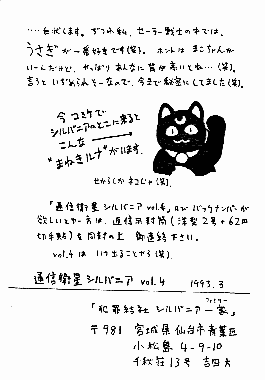 ……白状します。ずっと私、セーラー戦士の中では、
うさぎが一番好きです(笑)。ホントはまこちゃんが
いーんだけど、やっぱりあんなに背が高いとね…(笑)。
言うといぢめられそーなので、今まで秘密にしてました(笑)。
今コミケで
シルバニアのとこに来ると
こんな
"まねきルナ"がいます。
せからしか ネコじゃ(笑)。
「通信衛星 シルバニア vol.4」及びバックナンバーが
欲しいという方は、返信用封筒(洋型2号+62円
切手貼)を同封の上 御連絡下さい。
vol.4は いつ出ることやら(笑)。
通信衛星 シルバニア vol.4 1993.3
「犯罪結社 シルバニア一家」
ファミリー
〒981 宮城県仙台市青葉区
小松島 4-9-10
千秋荘13号 吉田方